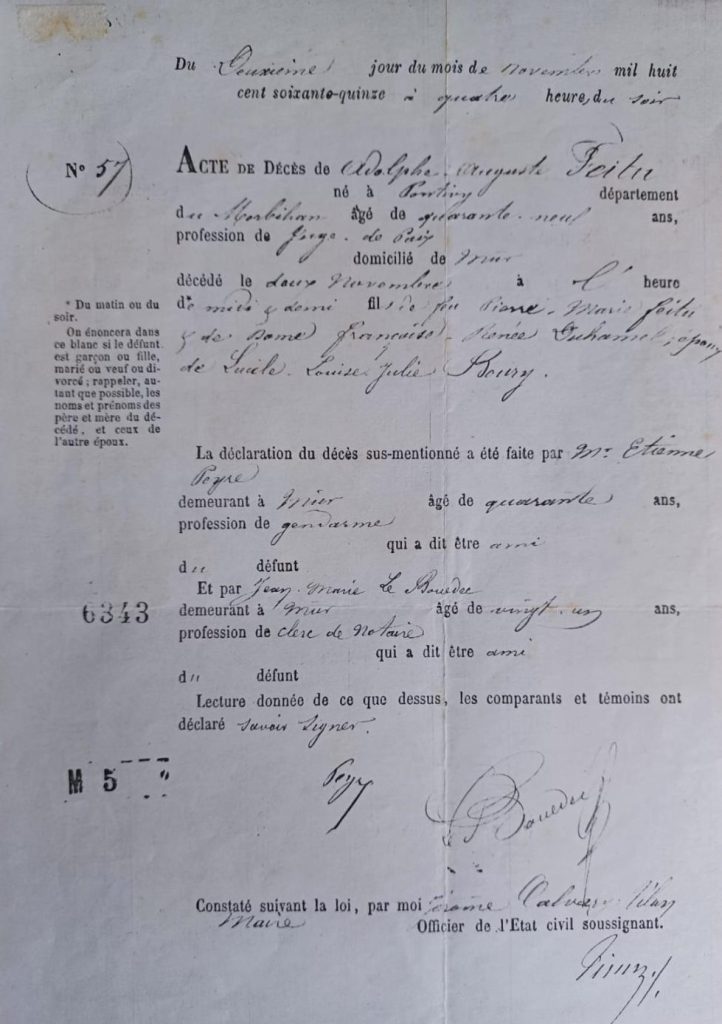 Du Deuxième jour du mois de novembre mil huit
cent soixante-quinze à quatre heure, du soir
No 57
ACTE DE DÉCÈS de Adolphe-Auguste Feitu
né à Pontivy département
du Morbihan âgé de quarante-neuf ans,
profession de Juge-de Paix
domicilié de Mûr
décédé le deux Novembre à l' heure
de midi & demi fils de feu Pierre-Marie Feitu
& de Dame françoise-Renée Duhamel, époux
de Lucile-Louise Julie Boury.
* Du matin ou du
soir.
On énoncera dans
ce blanc si le défunt
est garçon ou fille,
marié ou veuf ou di-
vorcé ; rappeler, au-
tant que possible, les
noms et prénoms des
père et mère du dé-
cédé, et ceux de
l'autre époux.
La déclaration du décès sus-mentionné a été faite par Mr Etienne
Peyre
demeurant à Mûr âgé de quarante ans,
profession de gendarme
qui a dit être ami
du défunt
Et par Jean-Marie Le Bouedec
demeurant à Mûr âgé de vingt-un ans,
profession de clerc de Notaire
qui a dit être ami
du défunt
6343
Lecture donnée de ce que dessus, les comparants et témoins ont
déclaré savoir signer.
M 5
Le Bouedec
Constaté suivant la loi, par moi Jérome
Maire Officier de l'Etat civil soussigné.